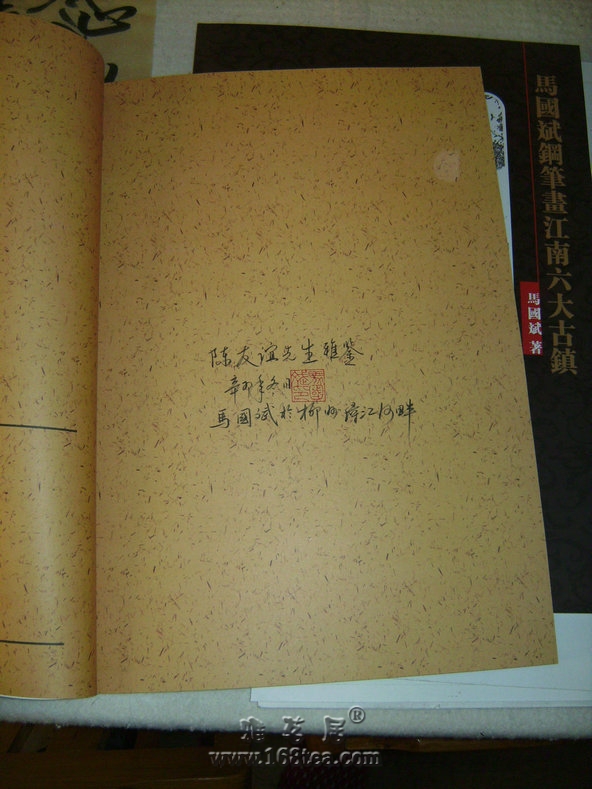 馬國斌鋼筆畫江南六大古鎮
馬國斌 著
陈友谊先生雅鉴
辛卯年冬日
馬國斌於柳州 江河畔
雅茗居®
www.168tea.com